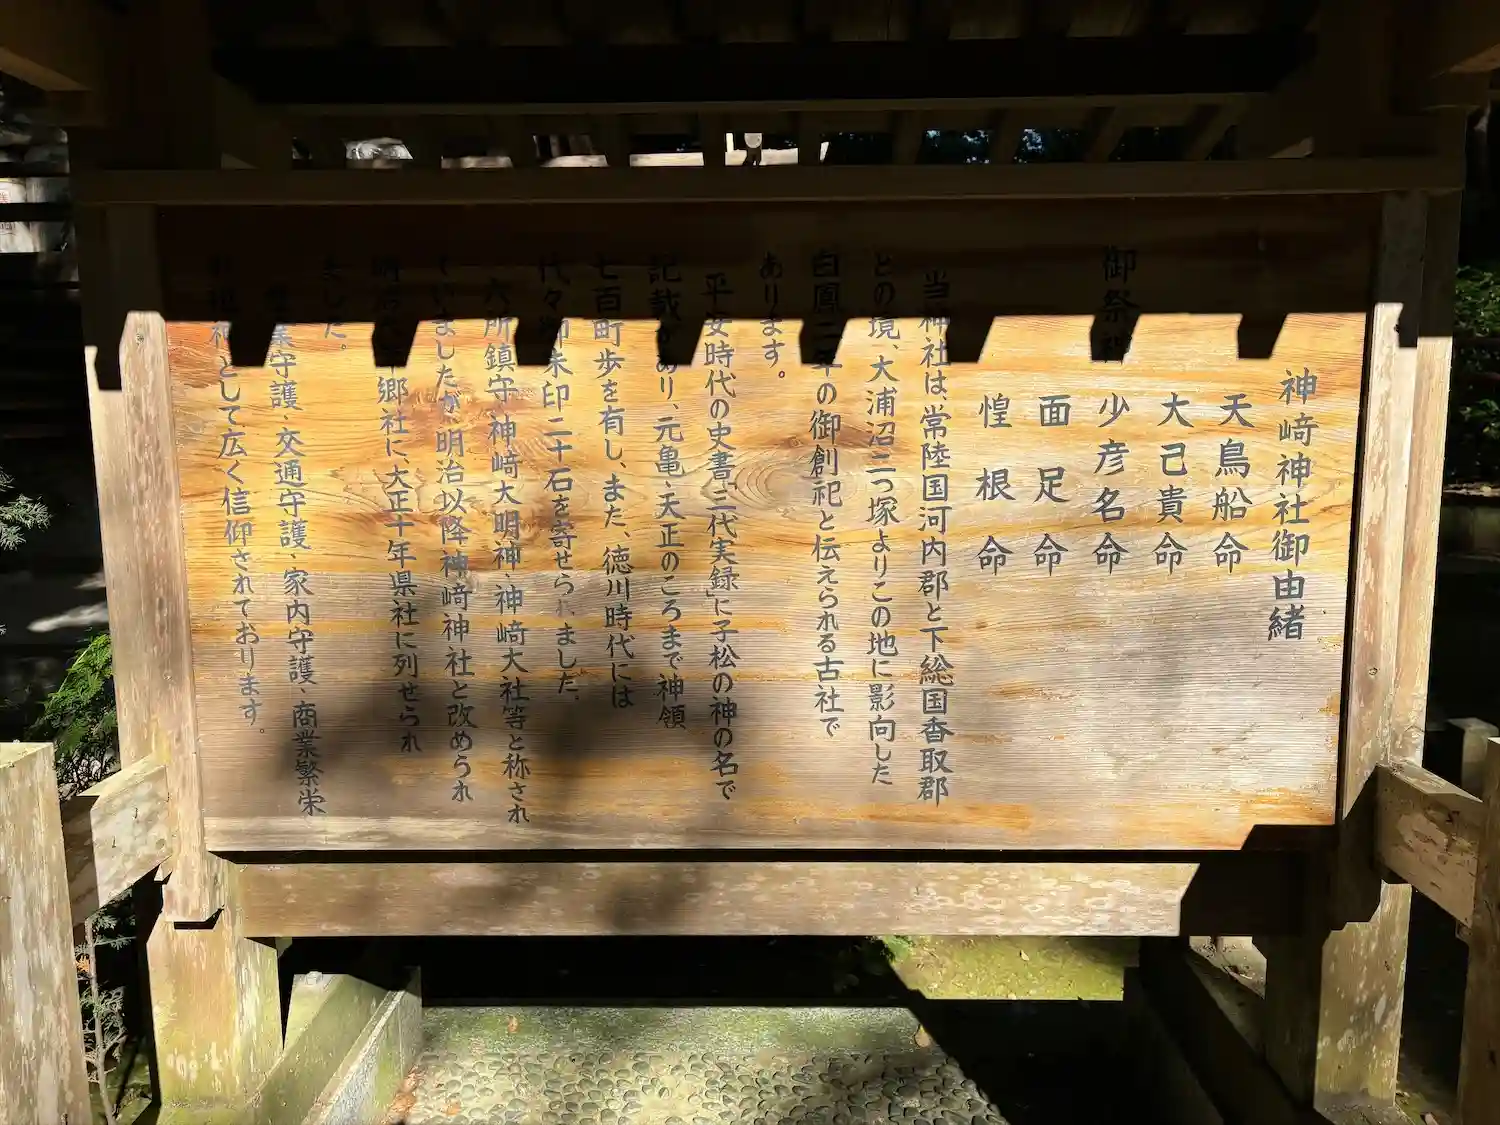 神﨑神社御由緒
御祭神
天鳥船命
大己貴命
少彦名命
面足命
惶根命
当神社は、常陸国河内郡と下総国香取郡
との境、大浦沼二つ塚よりこの地に影向した
白鳳二年の御創祀と伝えられる古社で
あります。
平安時代の史書「三代実録」に子松の神の名で
記載があり、元亀、天正のころまで神領
七百町歩を有し、また、徳川時代には
代々御朱印二十石を寄せられました。
六所鎮守、神﨑大明神、神﨑大社等と称され
ていましたが、明治以降神﨑神社と改められ
明治 郷社に、大正十年県社に列せられ
ました。
業守護、交通守護、家内守護、商業繁栄
神として広く信仰されております。